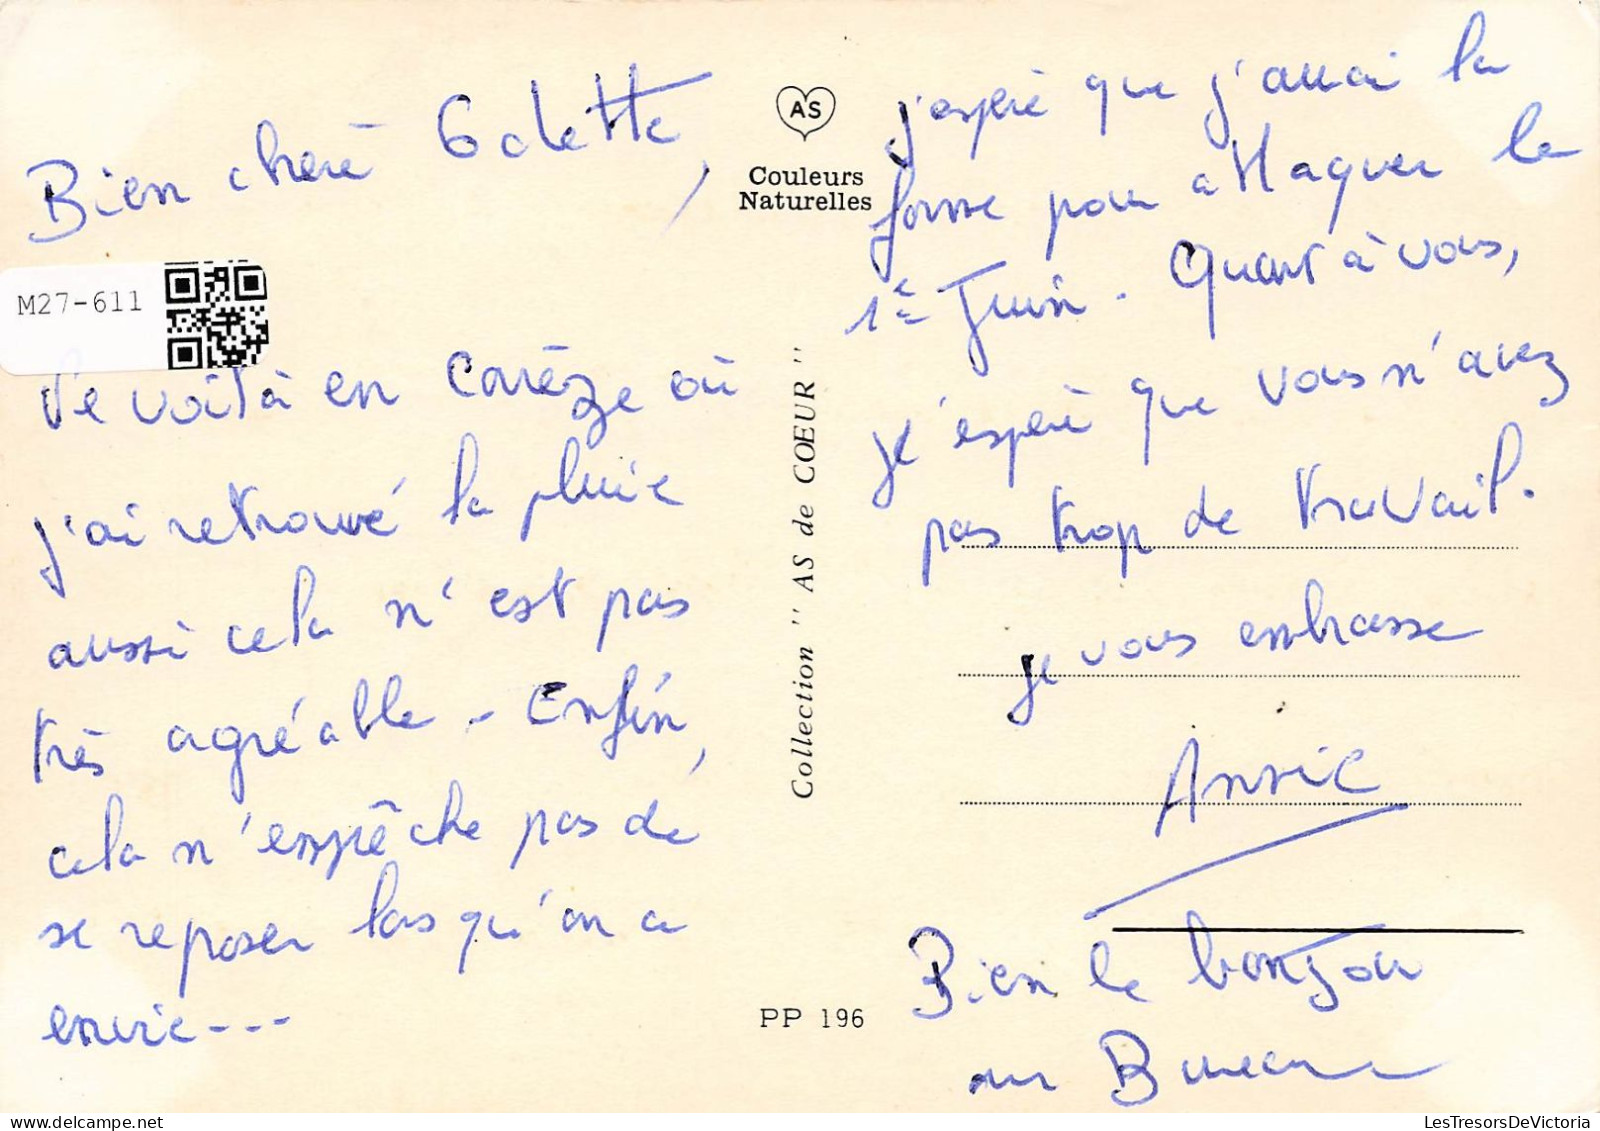 Bien chère Odette,
M27-611
Me voilà en Corrèze où
j'ai retrouvé la pluie
aussi cela n'est pas
très agréable - Enfin,
cela n'empêche pas de
se reposer lorsqu'on a
envie ---
AS
Couleurs
Naturelles
Collection "AS de CŒUR"
PP 196
j'espère que j'aurai la
forme pour attaquer le
1er Juin. Quant à vous,
je espère que vous n'avez
pas trop de travail.
je vous embrasse
Annie
Bien le bonjour
au Bureau
LesTresorsDeVictoria